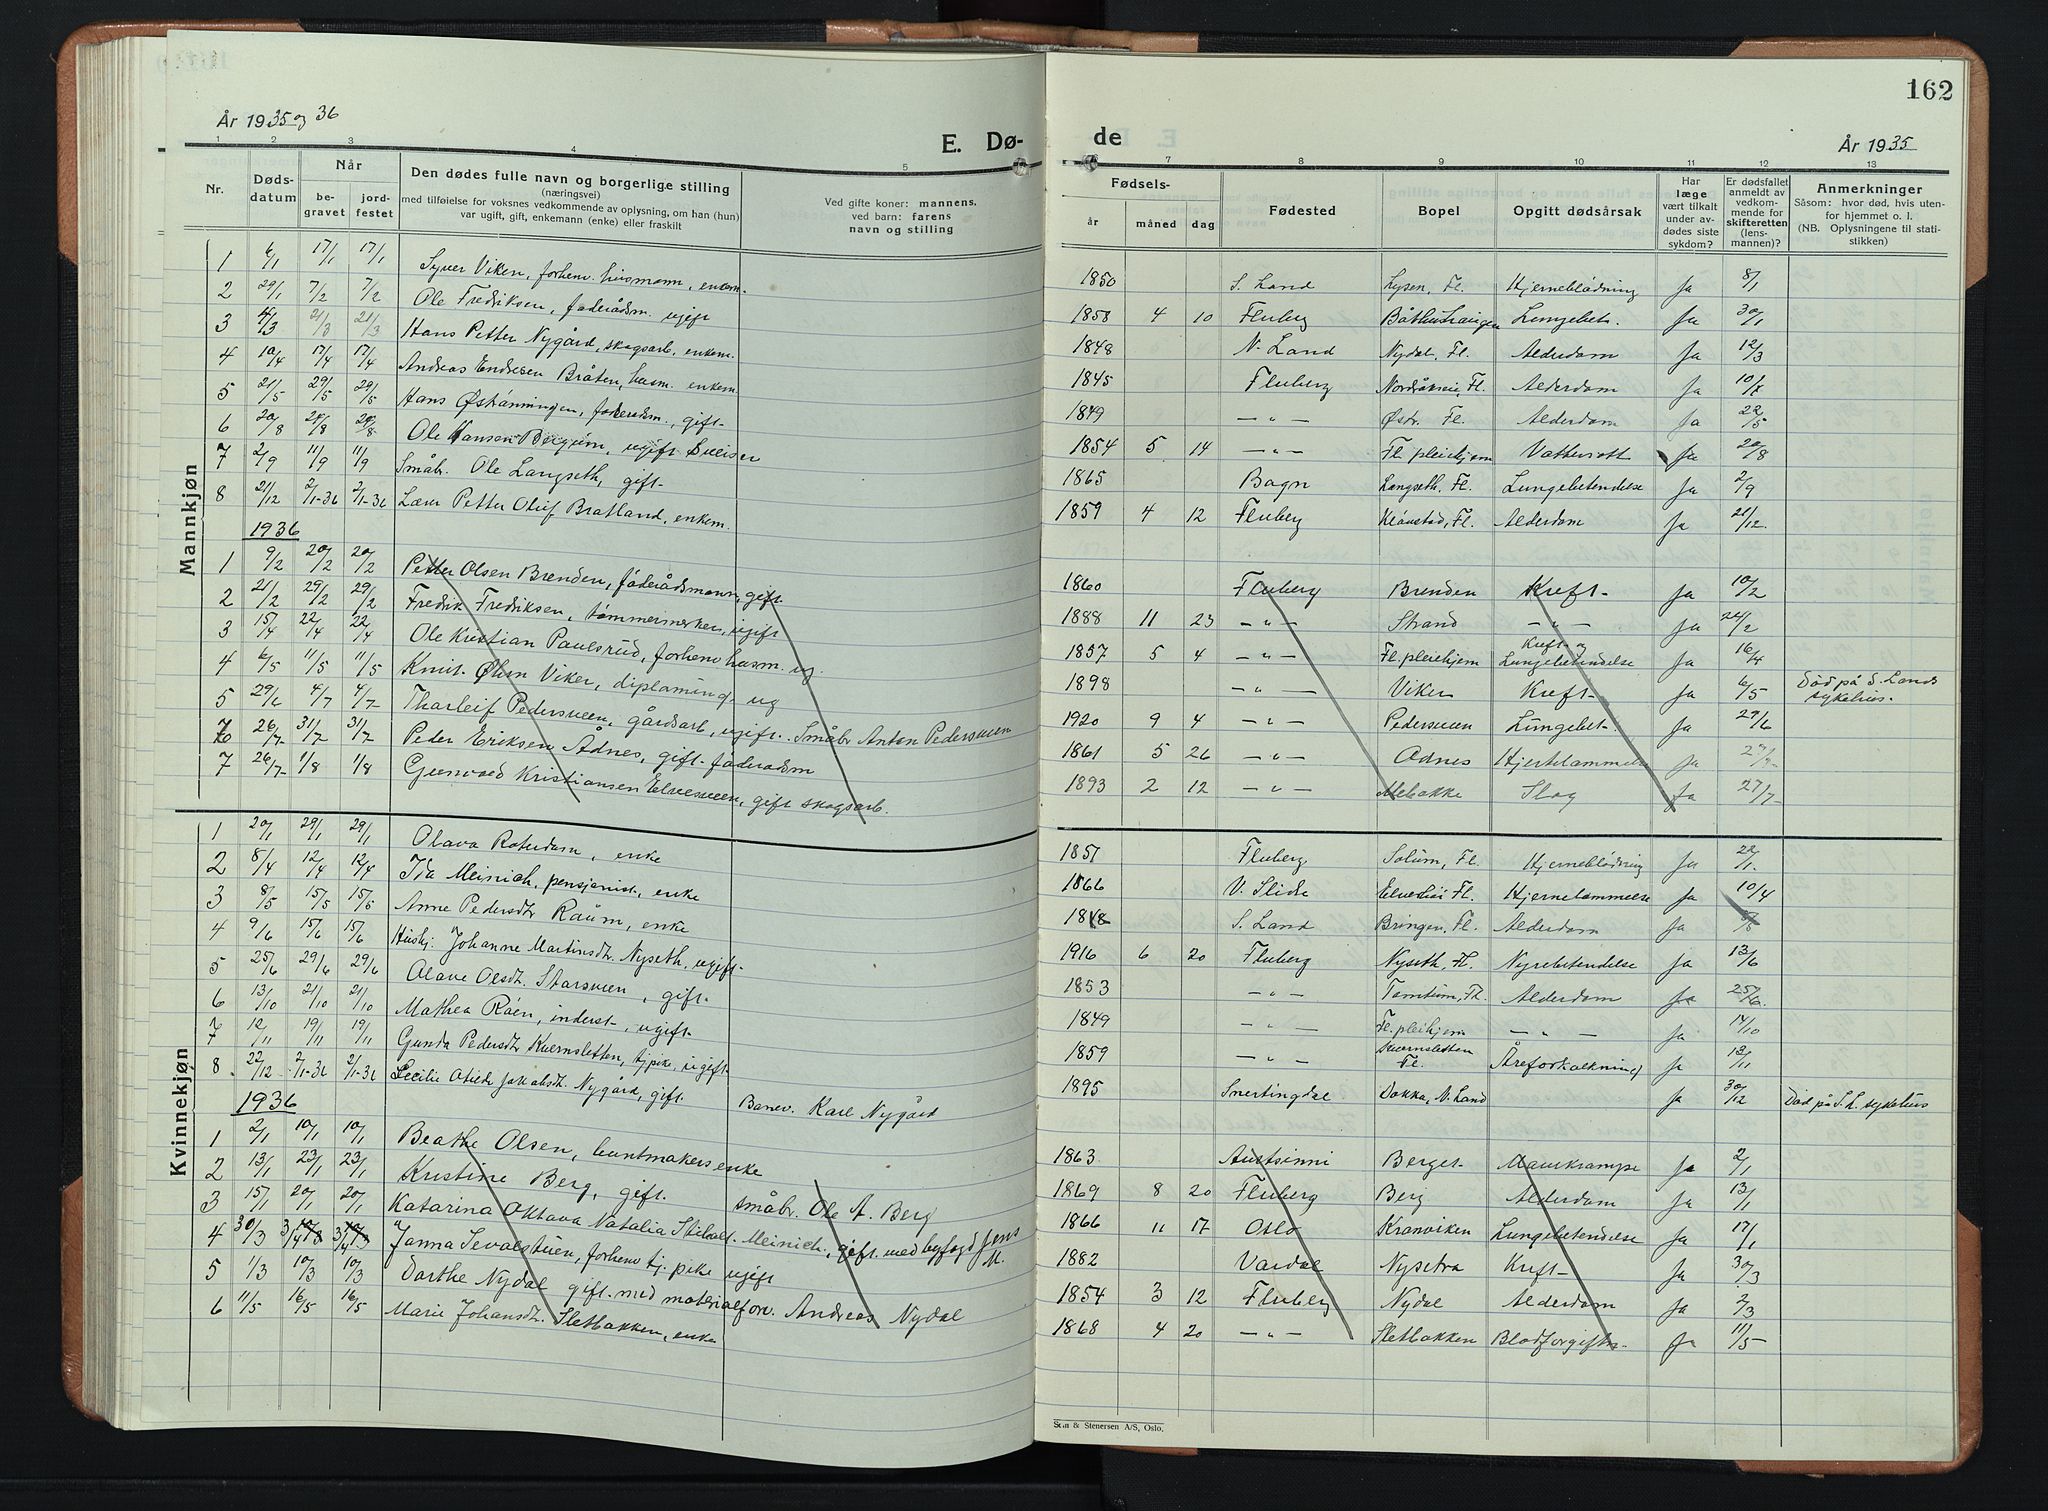 162
År 1935 og 36
E. Dø-
de
År 1935
1 2 3 4 5 6 7 8 9 10 11 12 13
Nr. Dødsdatum Når begravet jordfestet Den dødes fulle navn og borgerlige stilling (næringsvei) med tilføielse for voksnes vedkommende av oplysning, om han (hun) var ugift, gift, enkemann (enke) eller fraskilt Ved gifte koner: mannens, ved barn: farens navn og stilling Fødsels- år måned dag Fødested Bopel Opgitt dødsårsak Har læge vært tilkalt under avdødes siste sykdom? Er dødsfallet anmeldt av vedkommende for skifteretten (lensmannen)? Anmerkninger Såsom: hvor død, hvis utenfor hjemmet o. l. (NB. Oplysningene til statistikken)
Mannkjøn
1 6/1 17/1 17/1 Syver Viken, forhenv. husmann, enkem. 1850 S. Land Lysen, Fl. Hjerneblødning Ja 8/1
2 29/1 7/2 7/2 Ole Fredriksen, føderådsm. ugift 1858 4 10 Fluberg Lungebet. Ja 30/1
3 4/3 21/3 21/3 Hans Petter Nygård, skogsarb, enkem. 1848 N. Land Nydal, Fl. Alderdom Ja 12/3
4 10/4 17/4 17/4 Andreas Endresen Bråten, husm. enkem. 1845 Fluberg Nordåkeie, Fl. Alderdom Ja
5 21/5 29/5 29/5 Hans Østrønningen, føderådsm., gift 1849 — " — Østr. Fl. Alderdom Ja 22/5
6 20/8 28/8 28/8 Ole Hansen Bergum, ugift 1854 5 14 — " — Fl. pleiehjem Vattersott Ja 20/8
7 2/9 11/9 11/9 Småbr. Ole Langseth, gift 1865 Bagn Langseth, Fl. Lungebetendelse Ja 2/9
8 21/12 2/1-36 2/1-36 Lærer Petter Oluf Bratland, enkem. 1859 4 12 Fluberg Klåustad, Fl. Alderdom Ja 21/12
1936
1 9/2 20/2 20/2 Petter Olsen Brenden, føderådsmann, gift 1860 Fluberg Brenden Kreft Ja 10/2
2 21/2 29/2 29/2 Fredrik Fredriksen, tømmermerker, ugift 1888 11 23 — " — Strand — " — Ja 24/2
3 15/4 22/4 22/4 Ole Kristian Paulsrud, forhenv husm. ug. 1857 5 4 — " — Fl. pleiehjem Kreft og Lungebetendelse Ja 16/4
4 6/5 11/5 11/5 Knut Olsen Viker, diploming. ug 1898 — " — Viker Kreft Ja 6/5 Død på S. Lands sykehus.
5 29/6 4/7 4/7 Tharleif Pedersveen, gårdsarb, ugift. Småbr Anton Pedersveen 1920 9 4 — " — Pedersveen Lungebet. Ja 29/6
6 26/7 31/7 31/7 Peder Eriksen Ådnes, gift føderådsm 1861 5 26 — " — Ådnes Hjertelammelse Ja 27/7
7 26/7 1/8 1/8 Gunvald Kristiansen Elvesveen, gift skogsarb. 1893 2 12 — " — Mebakke Slag Ja 27/7
Kvinnekjøn
1 20/1 29/1 29/1 Olava Roterdam, enke 1851 Fluberg Solum, Fl. Hjerneblødning Ja 22/1
2 8/4 12/4 12/4 Ida Meinich, pensjonist, enke 1866 V. Slidre Fl. Hjernelammelse Ja 10/4
3 8/5 15/5 15/5 Anne Pedersdtr Raum, enke 1848 S. Land Bringen, Fl. Alderdom Ja 8/5
4 9/6 15/6 15/6 Hushj. Johanne Martinsdtr Nyseth, ugift 1916 6 20 Fluberg Nyseth, Fl. Nyrebetendelse Ja 13/6
5 25/6 29/6 29/6 Olave Olsdtr. Storsveen, gift 1853 — " — Tomtum, Fl. Alderdom Ja 25/6
6 13/10 21/10 21/10 Mathea Råen, inderst, ugift 1849 — " — Fl. pleihjem — " — Ja 14/10
7 12/11 19/11 19/11 Gunda Pedersdtr Kvernsletten, tj.pike, ugift 1859 — " — Kvernsletten Fl. Åreforkalkning Ja 12/11
8 22/12 2/1-36 2/1-36 Cecilie Otilde Jakobsdt. Nygård, gift Banev. Karl Nygård 1895 Snertingdal Dokka, N. Land Ja 30/12 Død på S. L. sykehus
1936
1 2/1 10/1 10/1 Beathe Olsen, buntmakersenke 1863 Austsinni Berget Mavekrampe Ja 2/1
2 13/1 23/1 23/1 Kristine Berg, gift. småbr. Ole A. Berg 1869 8 20 Fluberg Berg Alderdom Ja 13/1
3 15/1 20/1 20/1 Katarina Oktava Natalia Meinich, gift med byfogd Jens M. 1866 11 17 Oslo Kronviken Lungebetendelse Ja 17/1
4 30/3 3/4 3/4 Janna Sevalstuen, forhenv tj. pike ugift 1882 Vardal Nysetra Kreft Ja 30/3
5 1/3 10/3 10/3 Dorthe Nydal gift med materialforv. Andreas Nydal 1854 3 12 Fluberg Nydal Alderdom Ja 2/3
6 11/5 16/5 16/5 Marie Johansdt. Sletbakken, enke 1868 4 20 — " — Sletbakken Blodforgiftn. Ja 11/5
Sem & Stenersen A/S, Oslo.